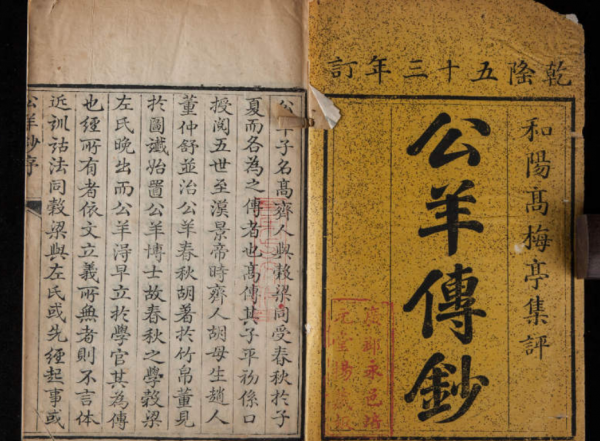 乾隆五十三年訂
和陽髙梅亭集評
公羊傳鈔
廣郡永邑培
元堂楊藏板
公羊子名髙齊人與穀梁同受春秋於子
夏而各為之傳者也髙傳其子平初係口
授閱五世至漢景帝時齊人胡母生趙人
董仲舒並治公羊春秋胡著於竹帛董見
於圖讖始置公羊博士故春秋之學穀梁
左氏晚出而公羊得早立於學官其為傳
也經所有者依文立義所無者則不言体
近訓詁法同穀梁與左氏或先經起事或
公羊鈔序